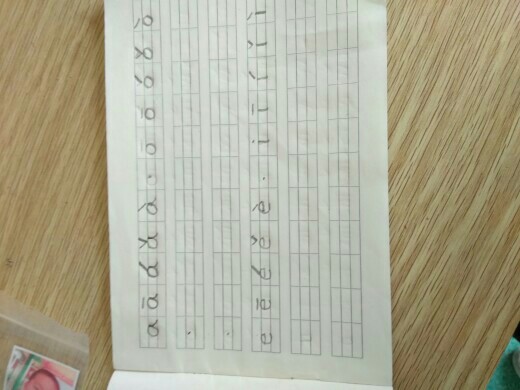 a ā á ǎ à · o ō ó ǒ ò
e ē é ě è · i ī í ǐ ì